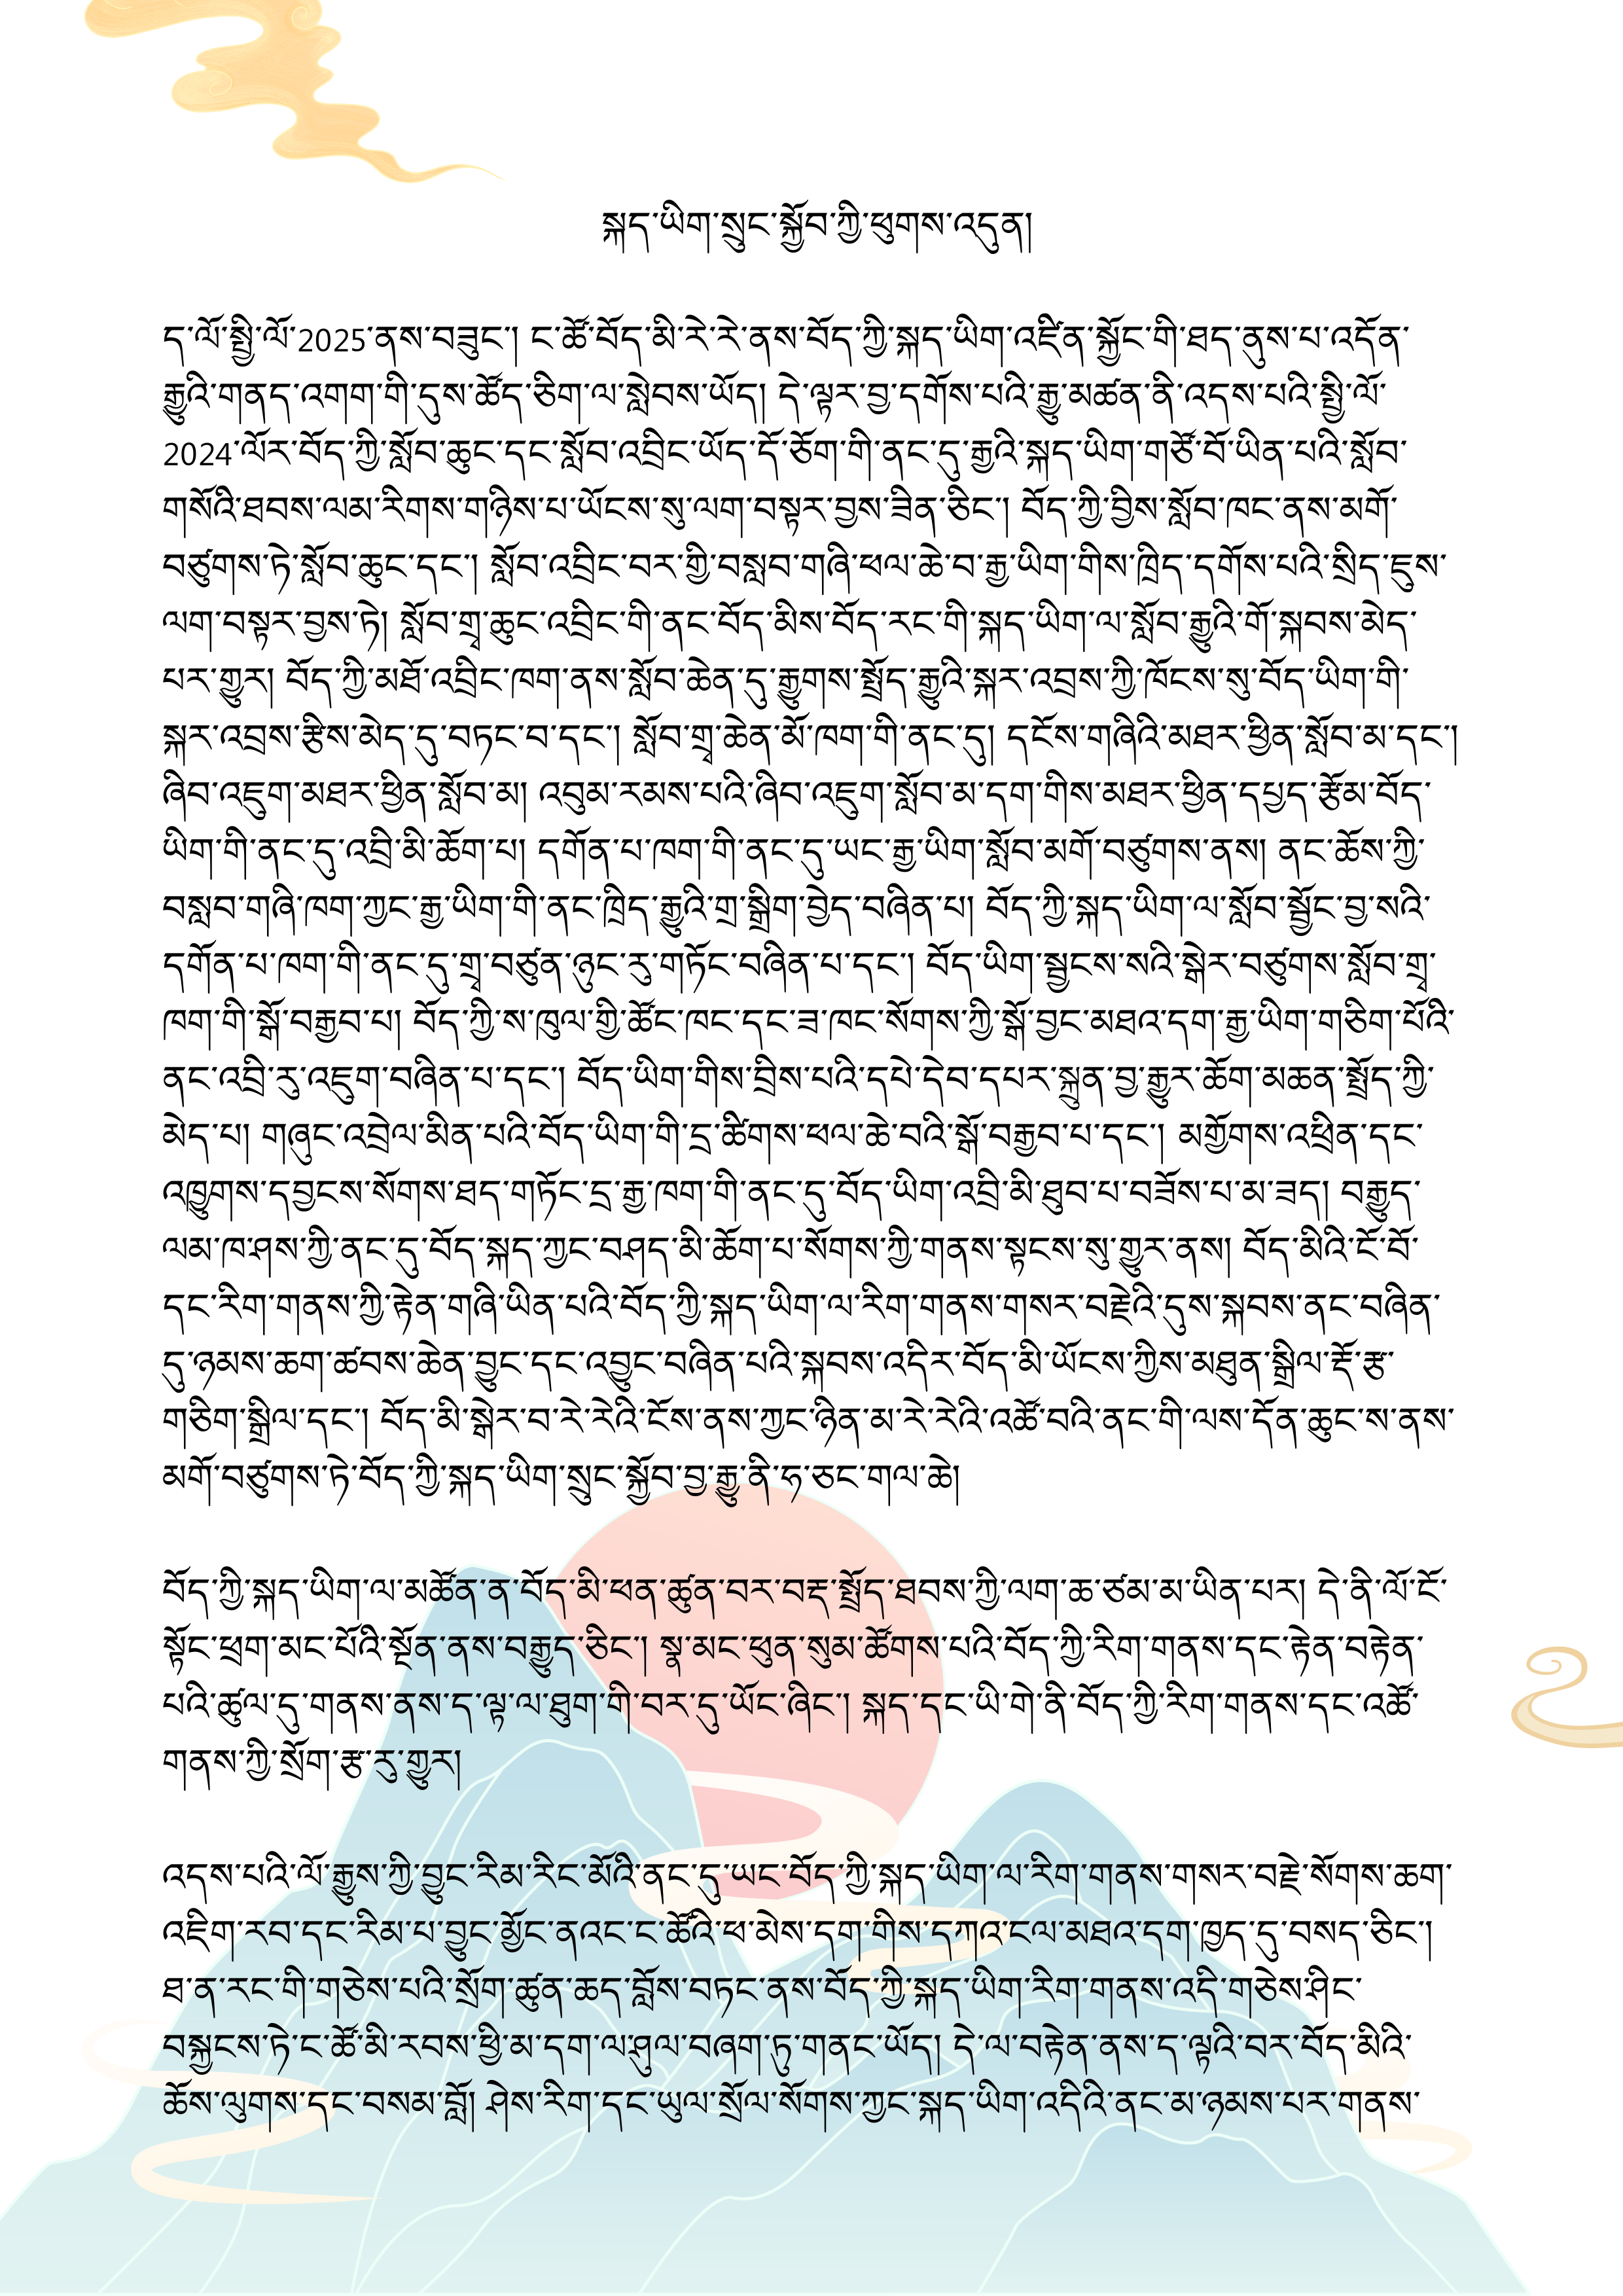 སྐད་ཡིག་སྲུང་སྐྱོབ་ཀྱི་ཕུགས་འདུན།
ད་ལོ་སྤྱི་ལོ་2025་ནས་བཟུང་། ང་ཚོ་བོད་མི་རེ་རེ་ནས་བོད་ཀྱི་སྐད་ཡིག་འཛིན་སྐྱོང་གི་ཐད་ནུས་པ་འདོན་
རྒྱུའི་གནད་འགག་གི་དུས་ཚོད་ཅིག་ལ་སླེབས་ཡོད། དེ་ལྟར་བྱ་དགོས་པའི་རྒྱུ་མཚན་ནི་འདས་པའི་སྤྱི་ལོ་
2024་ལོར་བོད་ཀྱི་སློབ་ཆུང་དང་སློབ་འབྲིང་ཡོད་དོ་ཅོག་གི་ནང་དུ་རྒྱའི་སྐད་ཡིག་གཙོ་བོ་ཡིན་པའི་སློབ་
གསོའི་ཐབས་ལམ་རིགས་གཉིས་པ་ཡོངས་སུ་ལག་བསྟར་བྱས་ཟིན་ཅིང་། བོད་ཀྱི་བྱིས་སློབ་ཁང་ནས་མགོ་
བཙུགས་ཏེ་སློབ་ཆུང་དང་། སློབ་འབྲིང་བར་གྱི་བསླབ་གཞི་ཕལ་ཆེ་བ་རྒྱ་ཡིག་གིས་ཁྲིད་དགོས་པའི་སྲིད་ཇུས་
ལག་བསྟར་བྱས་ཏེ། སློབ་གྲྭ་ཆུང་འབྲིང་གི་ནང་བོད་མིས་བོད་རང་གི་སྐད་ཡིག་ལ་སློབ་རྒྱུའི་གོ་སྐབས་མེད་
པར་གྱུར། བོད་ཀྱི་མཐོ་འབྲིང་ཁག་ནས་སློབ་ཆེན་དུ་རྒྱུགས་སྤྲོད་རྒྱུའི་སྐར་འབྲས་ཀྱི་ཁོངས་སུ་བོད་ཡིག་གི་
སྐར་འབྲས་རྩིས་མེད་དུ་བཏང་བ་དང་། སློབ་གྲྭ་ཆེན་མོ་ཁག་གི་ནང་དུ། དངོས་གཞིའི་མཐར་ཕྱིན་སློབ་མ་དང་།
ཞིབ་འཇུག་མཐར་ཕྱིན་སློབ་མ། འབུམ་རམས་པའི་ཞིབ་འཇུག་སློབ་མ་དག་གིས་མཐར་ཕྱིན་དཔྱད་རྩོམ་བོད་
ཡིག་གི་ནང་དུ་འབྲི་མི་ཆོག་པ། དགོན་པ་ཁག་གི་ནང་དུ་ཡང་རྒྱ་ཡིག་སློབ་མགོ་བཙུགས་ནས། ནང་ཆོས་ཀྱི་
བསླབ་གཞི་ཁག་ཀྱང་རྒྱ་ཡིག་གི་ནང་ཁྲིད་རྒྱུའི་གྲ་སྒྲིག་བྱེད་བཞིན་པ། བོད་ཀྱི་སྐད་ཡིག་ལ་སློབ་སྦྱོང་བྱ་སའི་
དགོན་པ་ཁག་གི་ནང་དུ་གྲྭ་བཙུན་ཉུང་རུ་གཏོང་བཞིན་པ་དང་། བོད་ཡིག་སྦྱངས་སའི་སྒེར་བཙུགས་སློབ་གྲྭ་
ཁག་གི་སྒོ་བརྒྱབ་པ། བོད་ཀྱི་ས་ཁུལ་གྱི་ཚོང་ཁང་དང་ཟ་ཁང་སོགས་ཀྱི་སྒོ་བྱང་མཐའ་དག་རྒྱ་ཡིག་གཅིག་པོའི་
ནང་འབྲི་རུ་འཇུག་བཞིན་པ་དང་། བོད་ཡིག་གིས་བྲིས་པའི་དཔེ་དེབ་དཔར་སྐྲུན་བྱ་རྒྱུར་ཆོག་མཆན་སྤྲོད་ཀྱི་
མེད་པ། གཞུང་འབྲེལ་མིན་པའི་བོད་ཡིག་གི་དྲ་ཚིགས་ཕལ་ཆེ་བའི་སྒོ་བརྒྱབ་པ་དང་། མགྱོགས་འཕྲིན་དང་
འཁྱུགས་དབྱངས་སོགས་ཐད་གཏོང་དྲ་རྒྱ་ཁག་གི་ནང་དུ་བོད་ཡིག་འབྲི་མི་ཐུབ་པ་བཟོས་པ་མ་ཟད། བརྒྱུད་
ལམ་ཁ་ཤས་ཀྱི་ནང་དུ་བོད་སྐད་ཀྱང་བཤད་མི་ཆོག་པ་སོགས་ཀྱི་གནས་སྟངས་སུ་གྱུར་ནས། བོད་མིའི་ངོ་བོ་
དང་རིག་གནས་ཀྱི་རྟེན་གཞི་ཡིན་པའི་བོད་ཀྱི་སྐད་ཡིག་ལ་རིག་གནས་གསར་བརྗེའི་དུས་སྐབས་ནང་བཞིན་
དུ་ཉམས་ཆག་ཚབས་ཆེན་བྱུང་དང་འབྱུང་བཞིན་པའི་སྐབས་འདིར་བོད་མི་ཡོངས་ཀྱིས་མཐུན་སྒྲིལ་རྡོ་རྩ་
གཅིག་སྒྲིལ་དང་། བོད་མི་སྒེར་བ་རེ་རེའི་ངོས་ནས་ཀྱང་ཉིན་མ་རེ་རེའི་འཚོ་བའི་ནང་གི་ལས་དོན་ཆུང་ས་ནས་
མགོ་བཙུགས་ཏེ་བོད་ཀྱི་སྐད་ཡིག་སྲུང་སྐྱོབ་བྱ་རྒྱུ་ནི་ཧ་ཅང་གལ་ཆེ།
བོད་ཀྱི་སྐད་ཡིག་ལ་མཚོན་ན་བོད་མི་ཕན་ཚུན་བར་བརྡ་སྤྲོད་ཐབས་ཀྱི་ལག་ཆ་ཙམ་མ་ཡིན་པར། དེ་ནི་ལོ་ངོ་
སྟོང་ཕྲག་མང་པོའི་སྔོན་ནས་བརྒྱུད་ཅིང་། སྣ་མང་ཕུན་སུམ་ཚོགས་པའི་བོད་ཀྱི་རིག་གནས་དང་རྟེན་བརྟེན་
པའི་ཚུལ་དུ་གནས་ནས་ད་ལྟ་ལ་ཐུག་གི་བར་དུ་ཡོང་ཞིང་། སྐད་དང་ཡི་གེ་ནི་བོད་ཀྱི་རིག་གནས་དང་འཚོ་
གནས་ཀྱི་སྲོག་རྩ་རུ་གྱུར།
འདས་པའི་ལོ་རྒྱུས་ཀྱི་བྱུང་རིམ་རིང་མོའི་ནང་དུ་ཡང་བོད་ཀྱི་སྐད་ཡིག་ལ་རིག་གནས་གསར་བརྗེ་སོགས་ཆག་
འཇིག་རབ་དང་རིམ་པ་བྱུང་མྱོང་ནའང་ང་ཚོའི་ཕ་མེས་དག་གིས་དཀའ་ངལ་མཐའ་དག་ཁྱད་དུ་བསད་ཅིང་།
ཐ་ན་རང་གི་གཅེས་པའི་སྲོག་ཚུན་ཆད་བློས་བཏང་ནས་བོད་ཀྱི་སྐད་ཡིག་རིག་གནས་འདི་གཅེས་ཤིང་
བསྐྱངས་ཏེ་ང་ཚོ་མི་རབས་ཕྱི་མ་དག་ལ་ཤུལ་བཞག་ཏུ་གནང་ཡོད། དེ་ལ་བརྟེན་ནས་ད་ལྟའི་བར་བོད་མིའི་
ཆོས་ལུགས་དང་བསམ་བློ། ཤེས་རིག་དང་ཡུལ་སྲོལ་སོགས་ཀྱང་སྐད་ཡིག་འདིའི་ནང་མ་ཉམས་པར་གནས་